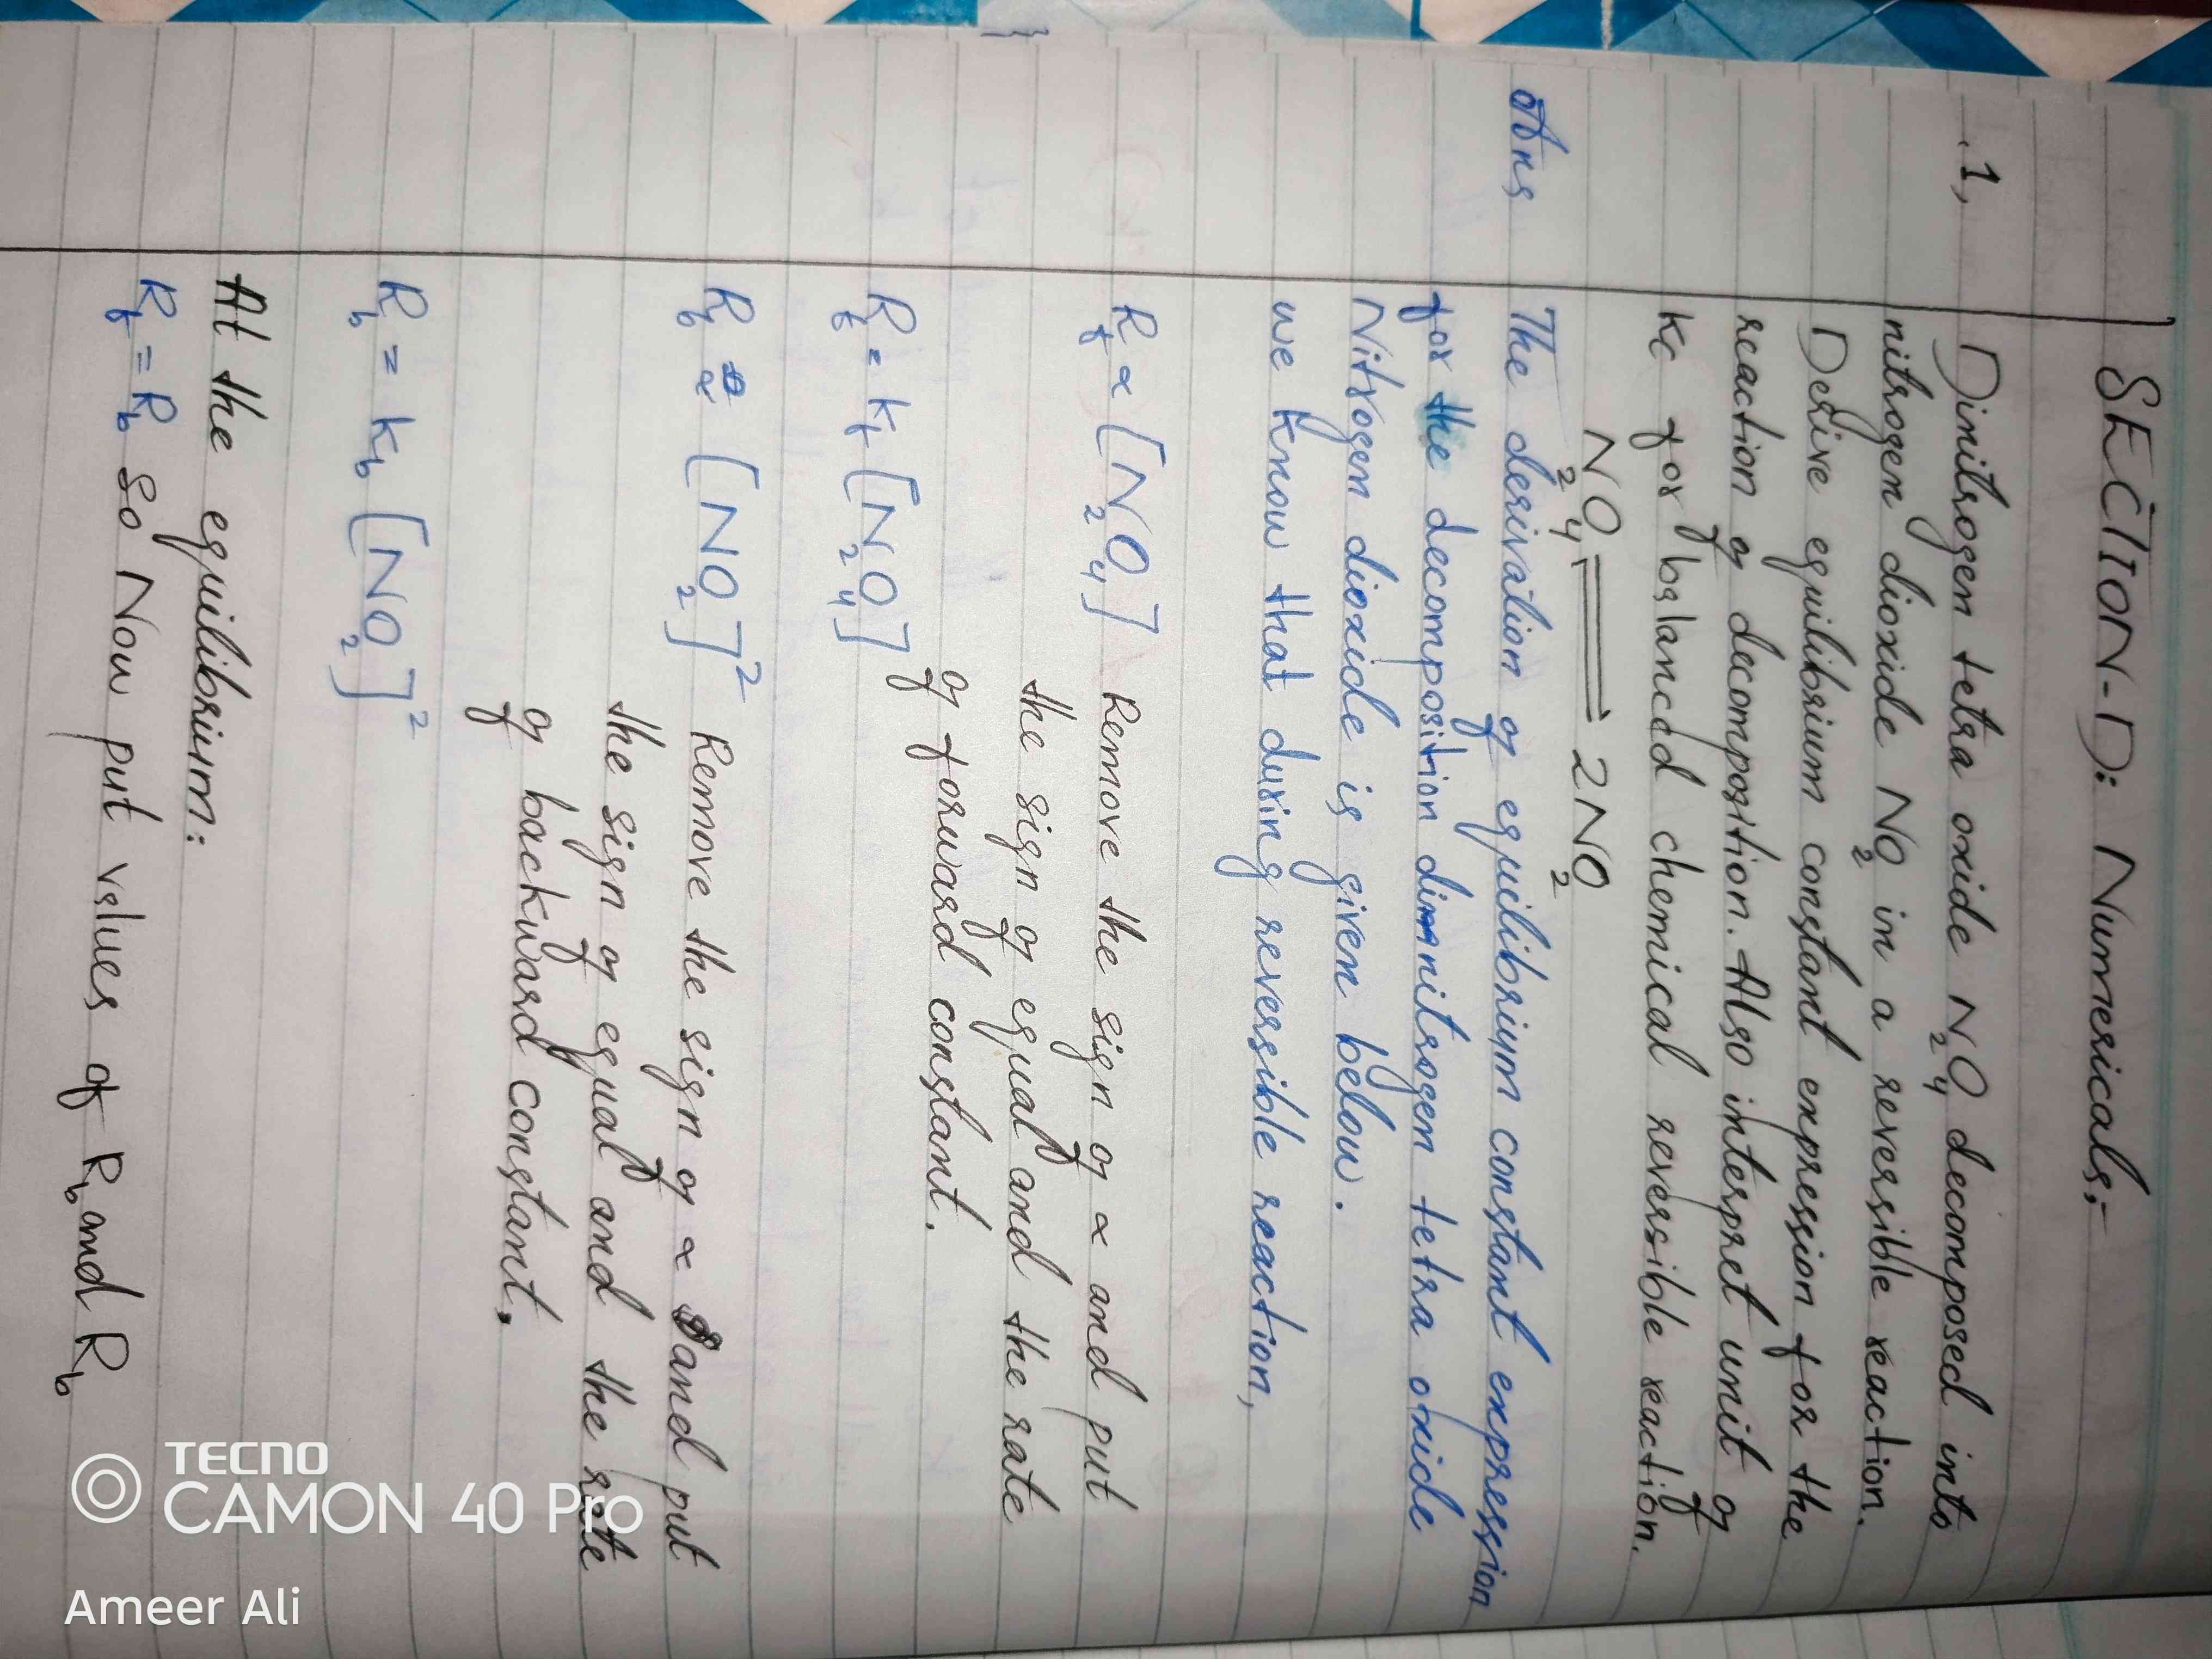 SECTION-D: Numericals:-
.1, Dinitrogen tetra oxide N₂O₄ decomposed into
nitrogen dioxide NO₂ in a reversible reaction.
Derive equilibrium constant expression for the
reaction of decomposition. Also interpret unit of
Kc for balanced chemical reversible reaction.
N₂O₄ ⇌ 2NO₂
Ans The derivation of equilibrium constant expression
for the decomposition dinitrogen tetra oxide
Nitrogen dioxide is given below.
we know that during reversible reaction,
R_f ∝ [N₂O₄] Remove the sign of ∝ and put
the sign of equal and the rate
of forward constant.
R_f = K_f [N₂O₄]
R_b ∝ [NO₂]² Remove the sign of ∝ and put
the sign of equal and the rate
of backward constant.
R_b = K_b [NO₂]²
At the equilibrium:
R_f = R_b So Now put values of R_b and R_b
TECNO
CAMON 40 Pro
Ameer Ali